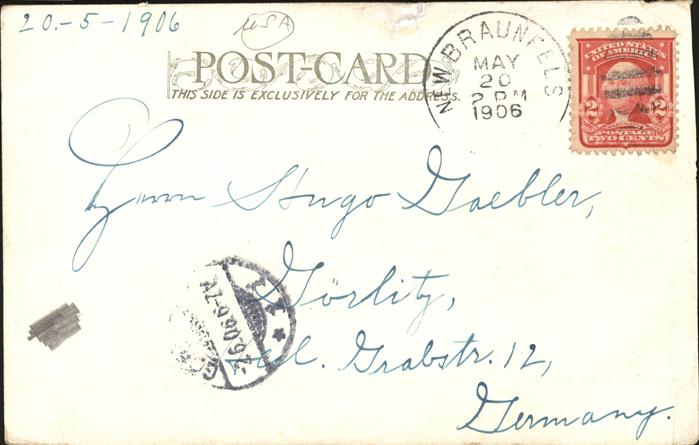 20.-5-1906
USA
POST-CARD
THIS SIDE IS EXCLUSIVELY FOR THE ADDRESS.
NEW BRAUNFELS
MAY
20
2 PM
1906
UNITED STATES
OF AMERICA
2 2
POSTAGE
TWO CENTS
Herrn Hugo Gaebler,
Görlitz,
Grabstr. 12,
Germany.
2.6.06.6-7N.